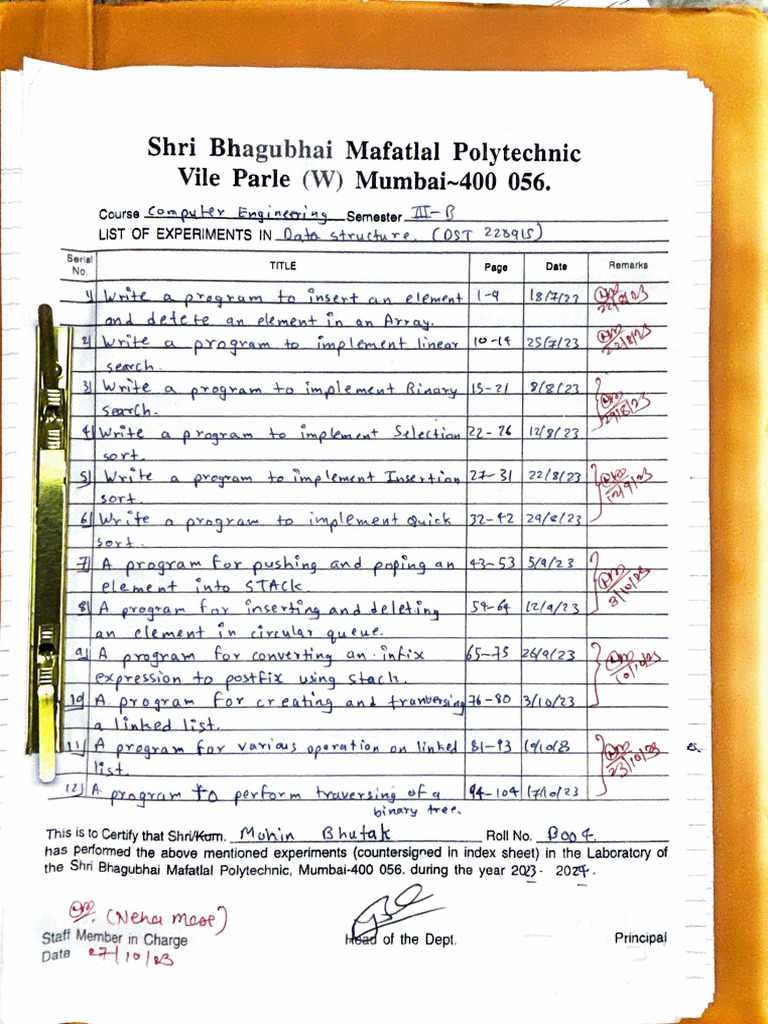 Shri Bhagubhai Mafatlal Polytechnic
Vile Parle (W) Mumbai~400 056.
Course Computer Engineering Semester III-B
LIST OF EXPERIMENTS IN Data structure. (DST 228915)
Serial No. TITLE Page Date Remarks
1) Write a program to insert an element 1-9 18/7/23 22/8/23
and delete an element in an Array.
2) Write a program to implement linear 10-14 25/7/23 22/8/23
search.
3) Write a program to implement Binary 15-21 8/8/23
search. 29/8/23
4) Write a program to implement Selection 22-26 12/8/23
sort.
5) Write a program to implement Insertion 27-31 22/8/23 12/9/23
sort.
6) Write a program to implement Quick 32-42 29/8/23
sort.
7) A program for pushing and poping an 43-53 5/9/23
element into STACK. 3/10/23
8) A program for inserting and deleting 54-64 12/9/23
an element in circular queue.
9) A program for converting an infix 65-75 26/9/23 10/10/23
expression to postfix using stack.
10) A program for creating and tranversing 76-80 3/10/23
a linked list.
11) A program for various operation on linked 81-93 10/10/23
list. 23/10/23
12) A program to perform traversing of a 94-104 17/10/23
binary tree.
This is to Certify that Shri/Kum. Mohin Bhutak Roll No. B004.
has performed the above mentioned experiments (countersigned in index sheet) in the Laboratory of
the Shri Bhagubhai Mafatlal Polytechnic, Mumbai-400 056. during the year 2023- 2024.
(Neha More)
Staff Member in Charge Head of the Dept. Principal
Date 27/10/23